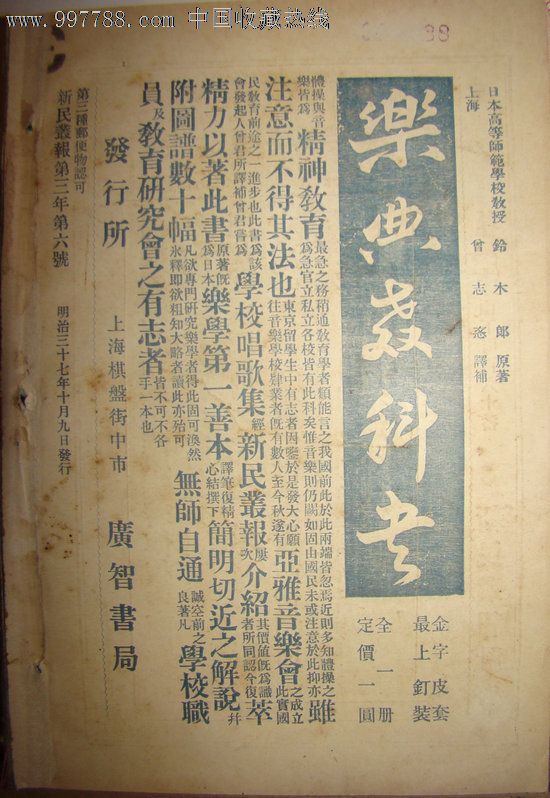 www.997788.com 中国收藏热线
88
日本高等師範學校敎授 鈴木
郎 原著
上海 曾志忞 譯補
樂典敎科書
金字皮套
最上釘裝
全一册
定價一圓
體操與音樂皆爲精神敎育最急之務稍通敎育學者類能言之我國前此於此兩端皆忽焉近則多知體操之爲急官立私立各校皆有此科矣惟音樂則仍闕如固由國民未或注意於此抑亦雖
注意而不得其法也東京留學生中有志者因鑒於是發大心願往音樂學校肄業者旣有數人至今秋遂有亞雅音樂會之成立此實國
民敎育前途之一進步也此書爲該會發起人曾君所譯補曾君嘗爲學校唱歌集經新民叢報屢次介紹其價値旣爲識者所同認今復萃
精力以著此書原著旣爲日本樂學第一善本譯筆復精心結撰下簡明切近之解說幷
附圖譜數十幅凡欲專門硏究樂學者得此固可渙然氷釋卽欲粗知大略者讀此亦殆可無師自通誠空前之良著凡學校職
員及敎育硏究會之有志者皆不可不各手一本也
發行所 上海棋盤街中市 廣智書局
第三種郵便物認可
新民叢報第三年第六號 明治三十七年十月九日發行